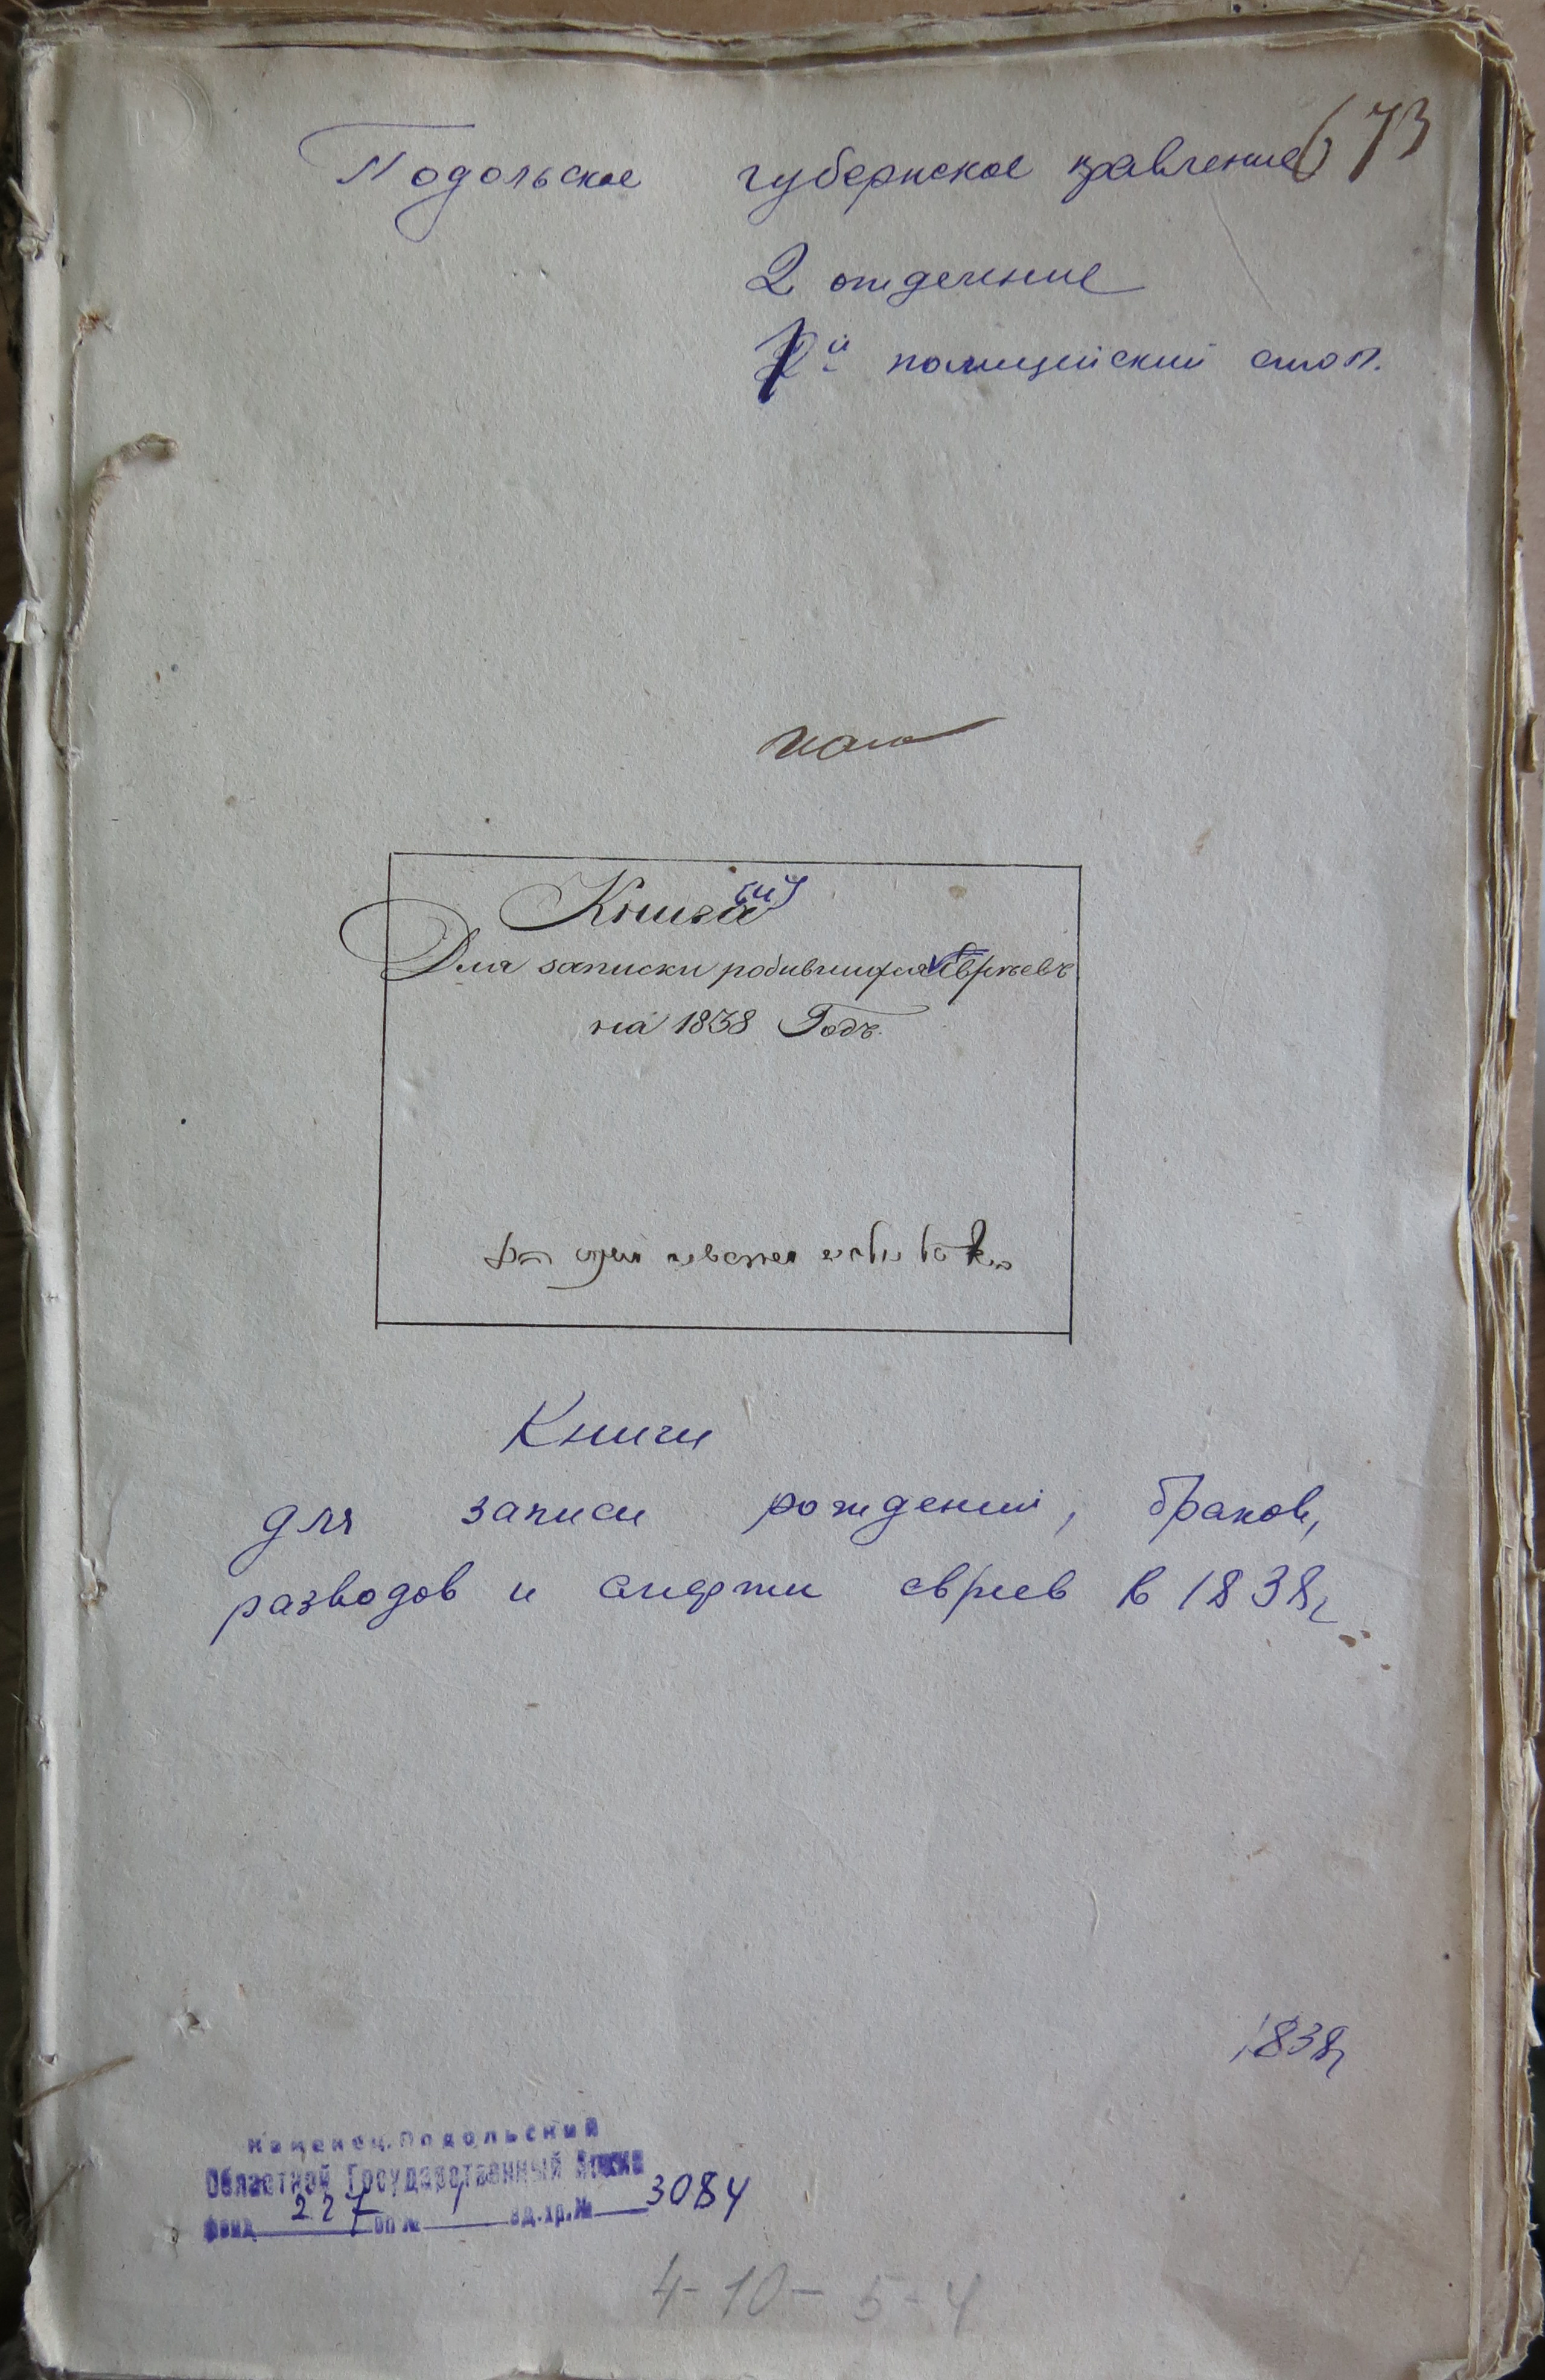 673
Подольское губернское правление
2 отделение
1й полицейский стол.
Книга
Для записки родившихся Евреевъ
на 1838 Годъ.
Книги
для записи рождений, браков,
разводов и смерти евреев в 1838г
1838г
Каменец-Подольский
Областной Государственный Архив
фонд 227 оп № 1 ед.хр.№ 3084
4-10-5-4